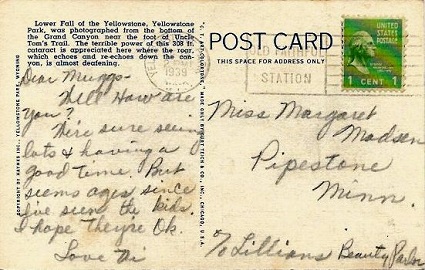 Lower Fall of the Yellowstone, Yellowstone
Park, was photographed from the bottom of
the Grand Canyon near the foot of Uncle
Tom's Trail. The terrible power of this 308 ft.
cataract is appreciated here where the roar,
which echoes and re-echoes down the can-
yon, is almost deafening.
Dear Muggs-
Well How are
you?
We're sure seein
lots & having a
good time. But
seems ages since
I've seen the kids.
I hope they're Ok.
Love Vi
COPYRIGHT BY HAYNES INC., YELLOWSTONE PARK, WYOMING
MADE ONLY BY CURT TEICH & CO., INC., CHICAGO, U.S.A.
POST CARD
THIS SPACE FOR ADDRESS ONLY
1939
OLD FAITHFUL
STATION
UNITED
STATES
POSTAGE
1 CENT 1
Miss Margaret
Madsen
Pipestone
Minn.
c/o Lillians Beauty Parlor